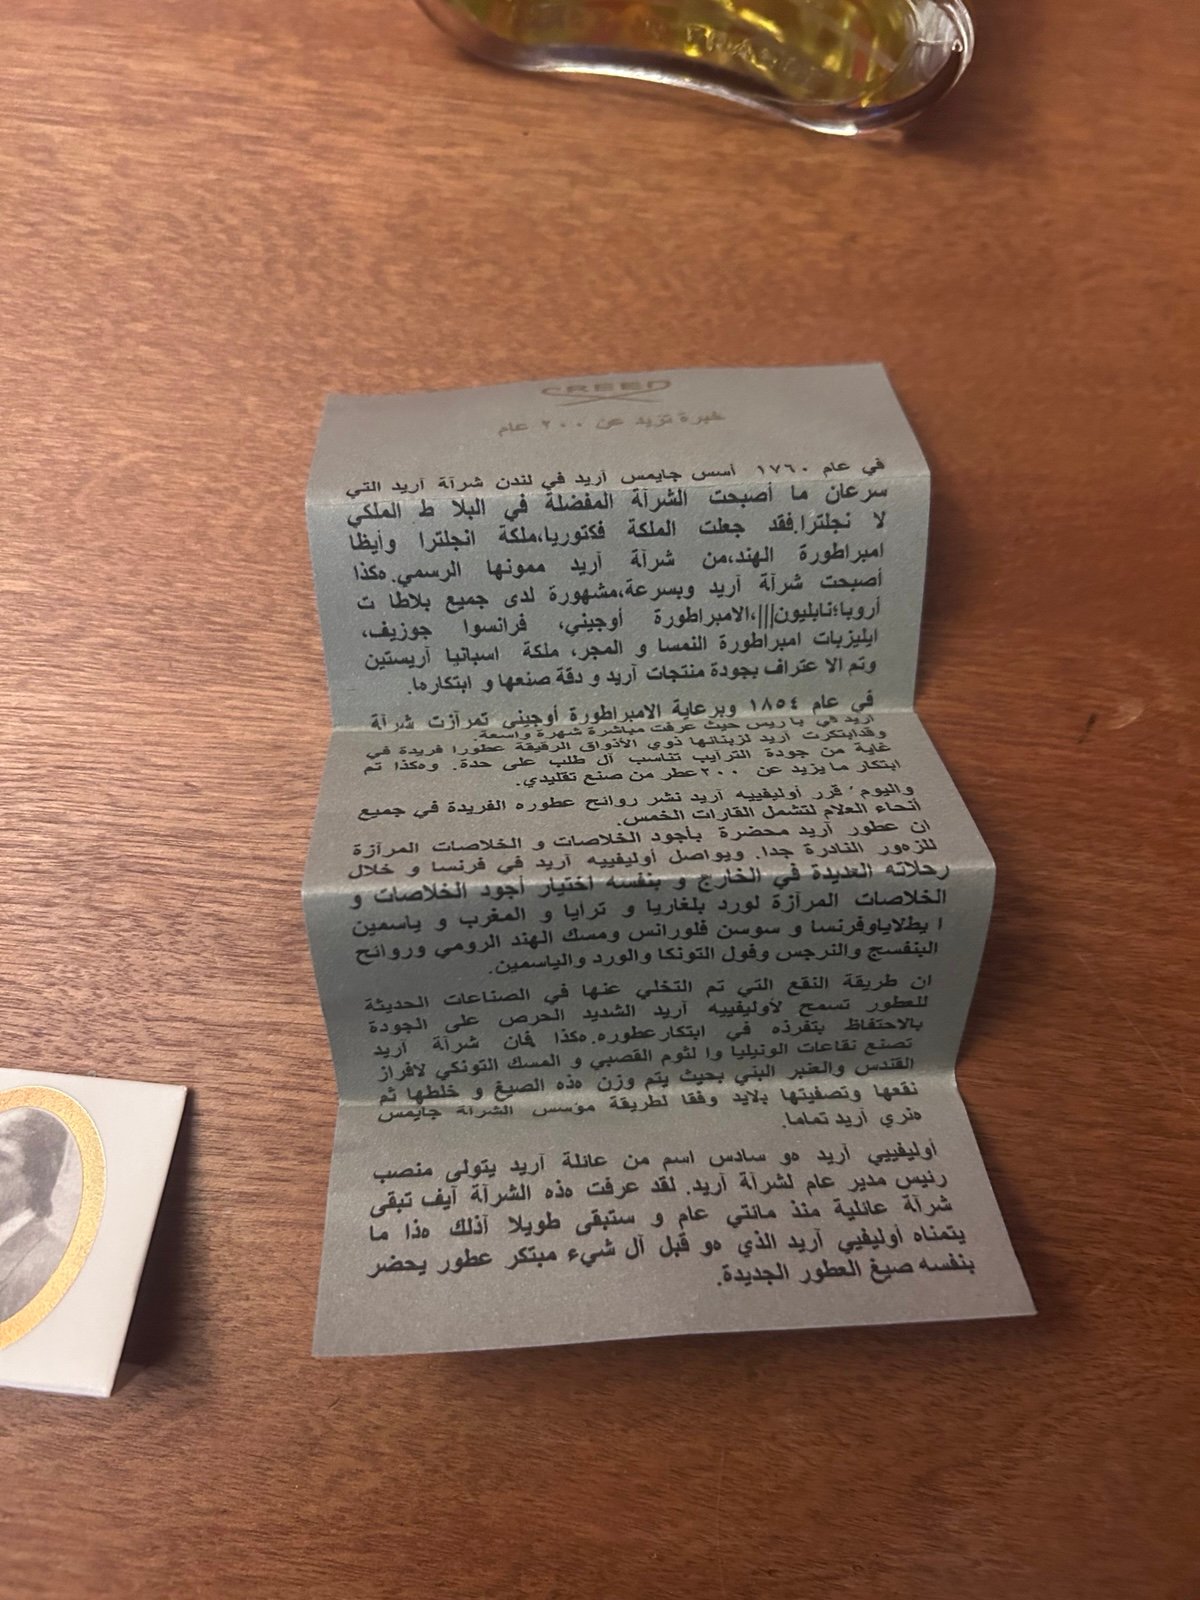 CREED
خبرة تزيد عن ٢٠٠ عام
في عام ١٧٦٠ أسس جايمس آريد في لندن شرآة آريد التي
سرعان ما أصبحت الشرآة المفضلة في البلا ط الملكي
لا نجلترا.فقد جعلت الملكة فكتوريا،ملكة انجلترا وأيظا
امبراطورة الهند،من شرآة آريد ممونها الرسمي.هكذا
أصبحت شرآة آريد وبسرعة،مشهورة لدى جميع بلاطا ت
أروبا؛نابليون|||،الامبراطورة أوجيني، فرانسوا جوزيف،
ايليزبات امبراطورة النمسا و المجر، ملكة اسبانيا آريستين
وتم الا عتراف بجودة منتجات آريد و دقة صنعها و ابتكارها.
في عام ١٨٥٤ وبرعاية الامبراطورة أوجيني تمرآزت شرآة
آريد في باريس حيث عرفت مباشرة شهرة واسعة.
وقدابتكرت آريد لزبنائها ذوي الأذواق الرقيقة عطورا فريدة في
غاية من جودة الترآيب تناسب آل طلب على حدة. وهكذا تم
ابتكار مايزيد عن ٢٠٠عطر من صنع تقليدي.
واليوم، قرر أوليفييه آريد نشر روائح عطوره الفريدة في جميع
أنحاء العلام لتشمل القارات الخمس.
ان عطور آريد محضرة بأجود الخلاصات و الخلاصات المرآزة
للزهور النادرة جدا. ويواصل أوليفييه آريد في فرنسا و خلال
رحلاته العديدة في الخارج و بنفسه اختيار أجود الخلاصات و
الخلاصات المرآزة لورد بلغاريا و ترآيا و المغرب و ياسمين
ا يطلاياوفرنسا و سوسن فلورانس ومسك الهند الرومي وروائح
البنفسج والنرجس وفول التونكا والورد والياسمين.
ان طريقة النقع التي تم التخلي عنها في الصناعات الحديثة
للعطور تسمح لأوليفييه آريد الشديد الحرص على الجودة
بالاحتفاظ بتفرذه في ابتكارعطوره.هكذا فان شرآة آريد
تصنع نقاعات الونيليا وا لثوم القصبي و المسك التونكي لافراز
القندس والعنبر البني بحيث يتم وزن هذه الصيغ و خلطها ثم
نقعها وتصفيتها بلايد وفقا لطريقة مؤسس الشرآة جايمس
هنري آريد تماما.
أوليفيي آريد هو سادس اسم من عائلة آريد يتولى منصب
رئيس مدير عام لشرآة آريد. لقد عرفت هذه الشرآة آيف تبقى
شرآة عائلية منذ مائتي عام و ستبقى طويلا آذلك هذا ما
يتمناه أوليفيي آريد الذي هو قبل آل شيء مبتكر عطور يحضر
بنفسه صيغ العطور الجديدة.